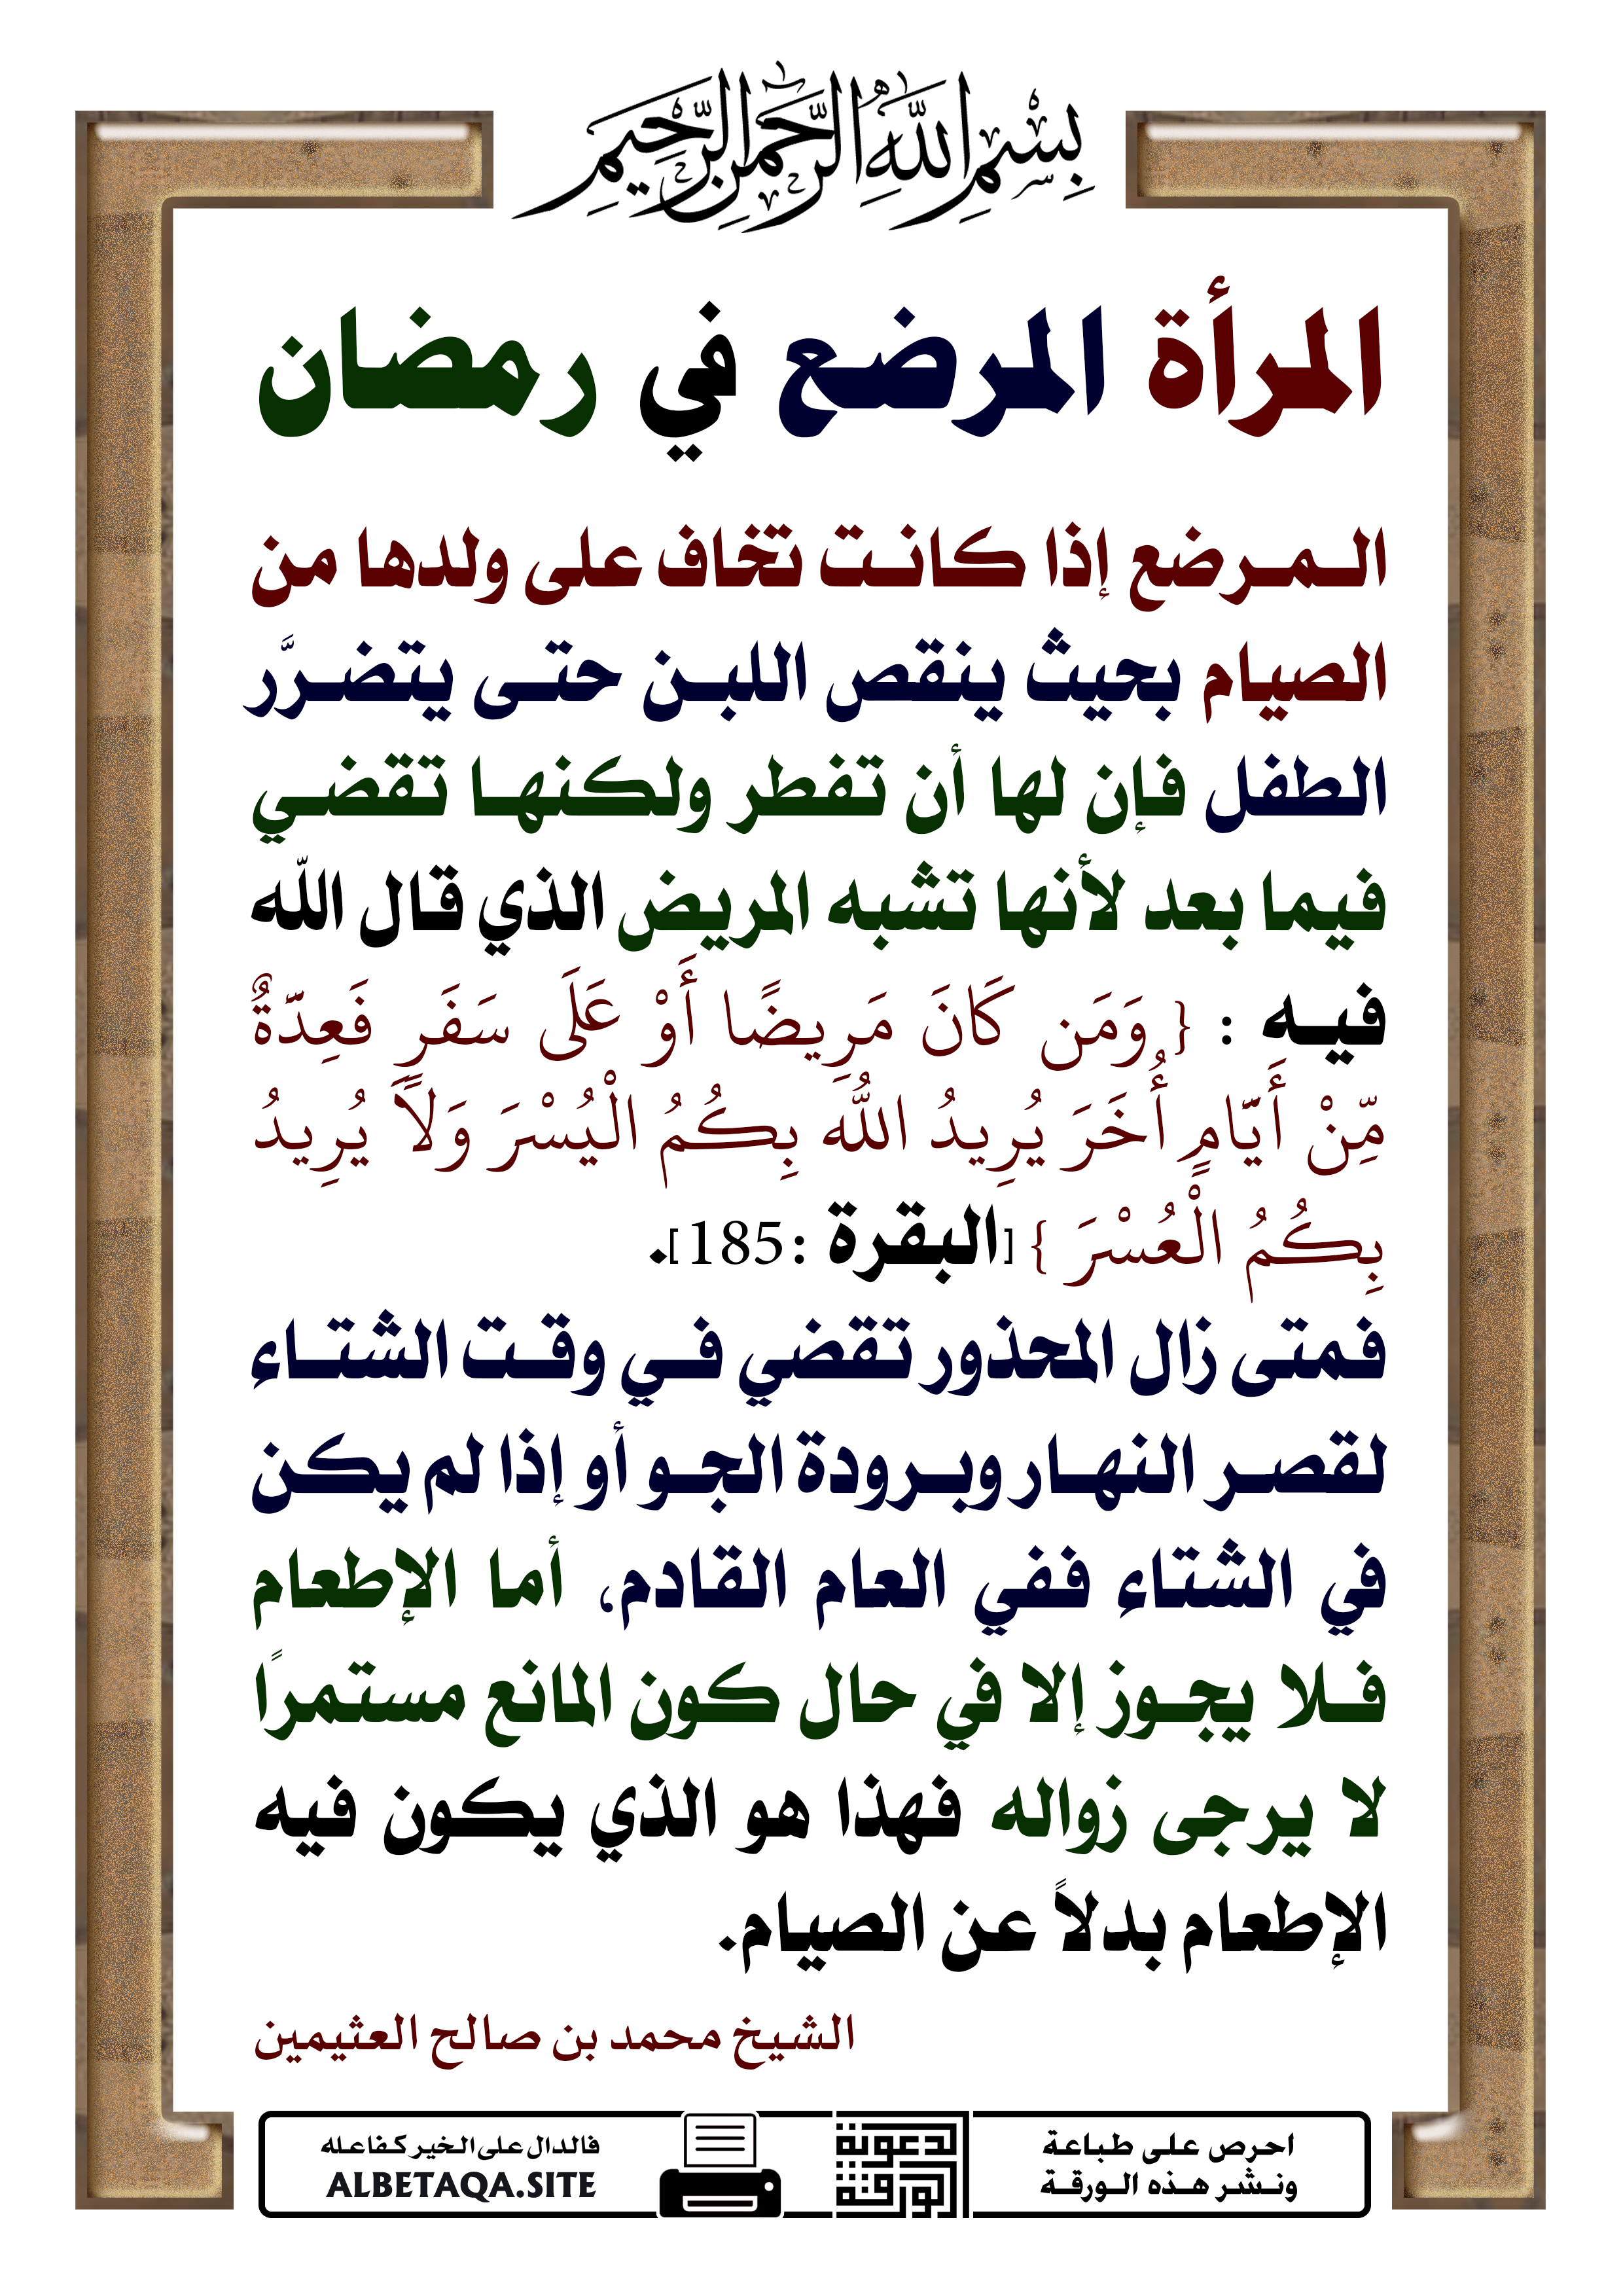 بِسْمِ اللَّهِ الرَّحْمَنِ الرَّحِيمِ
المرأة المرضع في رمضان
المرضع إذا كانت تخاف على ولدها من
الصيام بحيث ينقص اللبن حتى يتضرَّر
الطفل فإن لها أن تفطر ولكنها تقضي
فيما بعد لأنها تشبه المريض الذي قال الله
فيه : { وَمَن كَانَ مَرِيضًا أَوْ عَلَى سَفَرٍ فَعِدَّةٌ
مِّنْ أَيَّامٍ أُخَرَ يُرِيدُ اللهُ بِكُمُ الْيُسْرَ وَلاَ يُرِيدُ
بِكُمُ الْعُسْرَ } [البقرة :185].
فمتى زال المحذور تقضي في وقت الشتاء
لقصر النهار وبرودة الجو أو إذا لم يكن
في الشتاء ففي العام القادم، أما الإطعام
فلا يجوز إلا في حال كون المانع مستمرًا
لا يرجى زواله فهذا هو الذي يكون فيه
الإطعام بدلاً عن الصيام.
الشيخ محمد بن صالح العثيمين
احرص على طباعة
ونشر هذه الورقة
الورقة
الدعوية
فالدال على الخير كفاعله
ALBETAQA.SITE